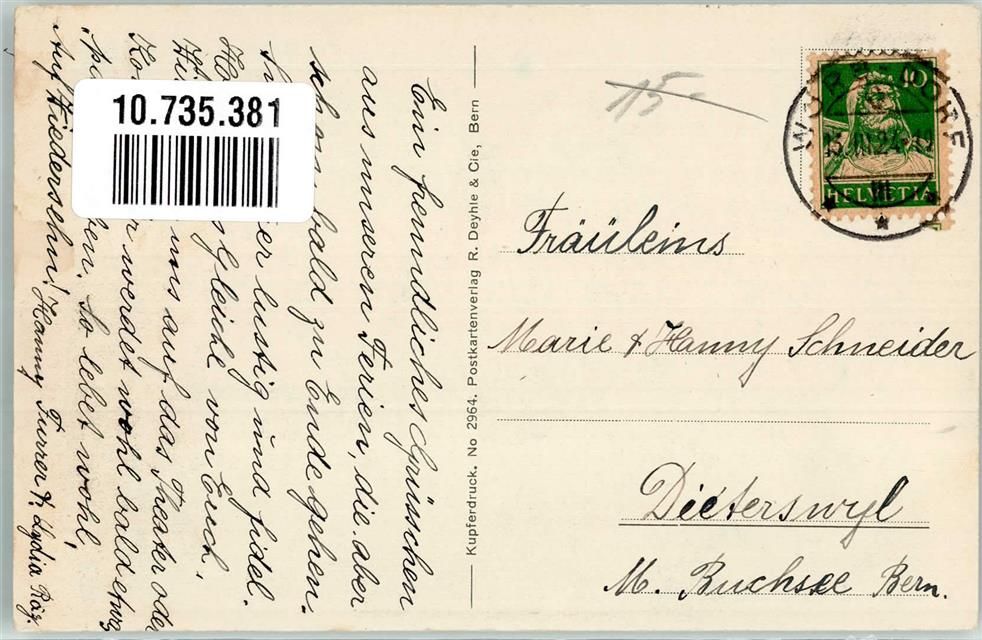 10.735.381
Ein freundliches Grüsschen
aus unseren Ferien, die aber
schon bald zu Ende gehen.
er lustig und fidel.
gleicht von Euch.
uns auf das Theater oder
werdet wohl bald etwas
ben. So lebet wohl,
Auf Wiedersehn! Hanny Furrer & Lydia Röz.
Kupferdruck. No 2964. Postkartenverlag R. Deyhle & Cie, Bern
15
10
HELVETIA
WORBLAUFEN
Fräuleins
Marie & Hanny Schneider
Dieterswyl
M. Buchsee Bern.